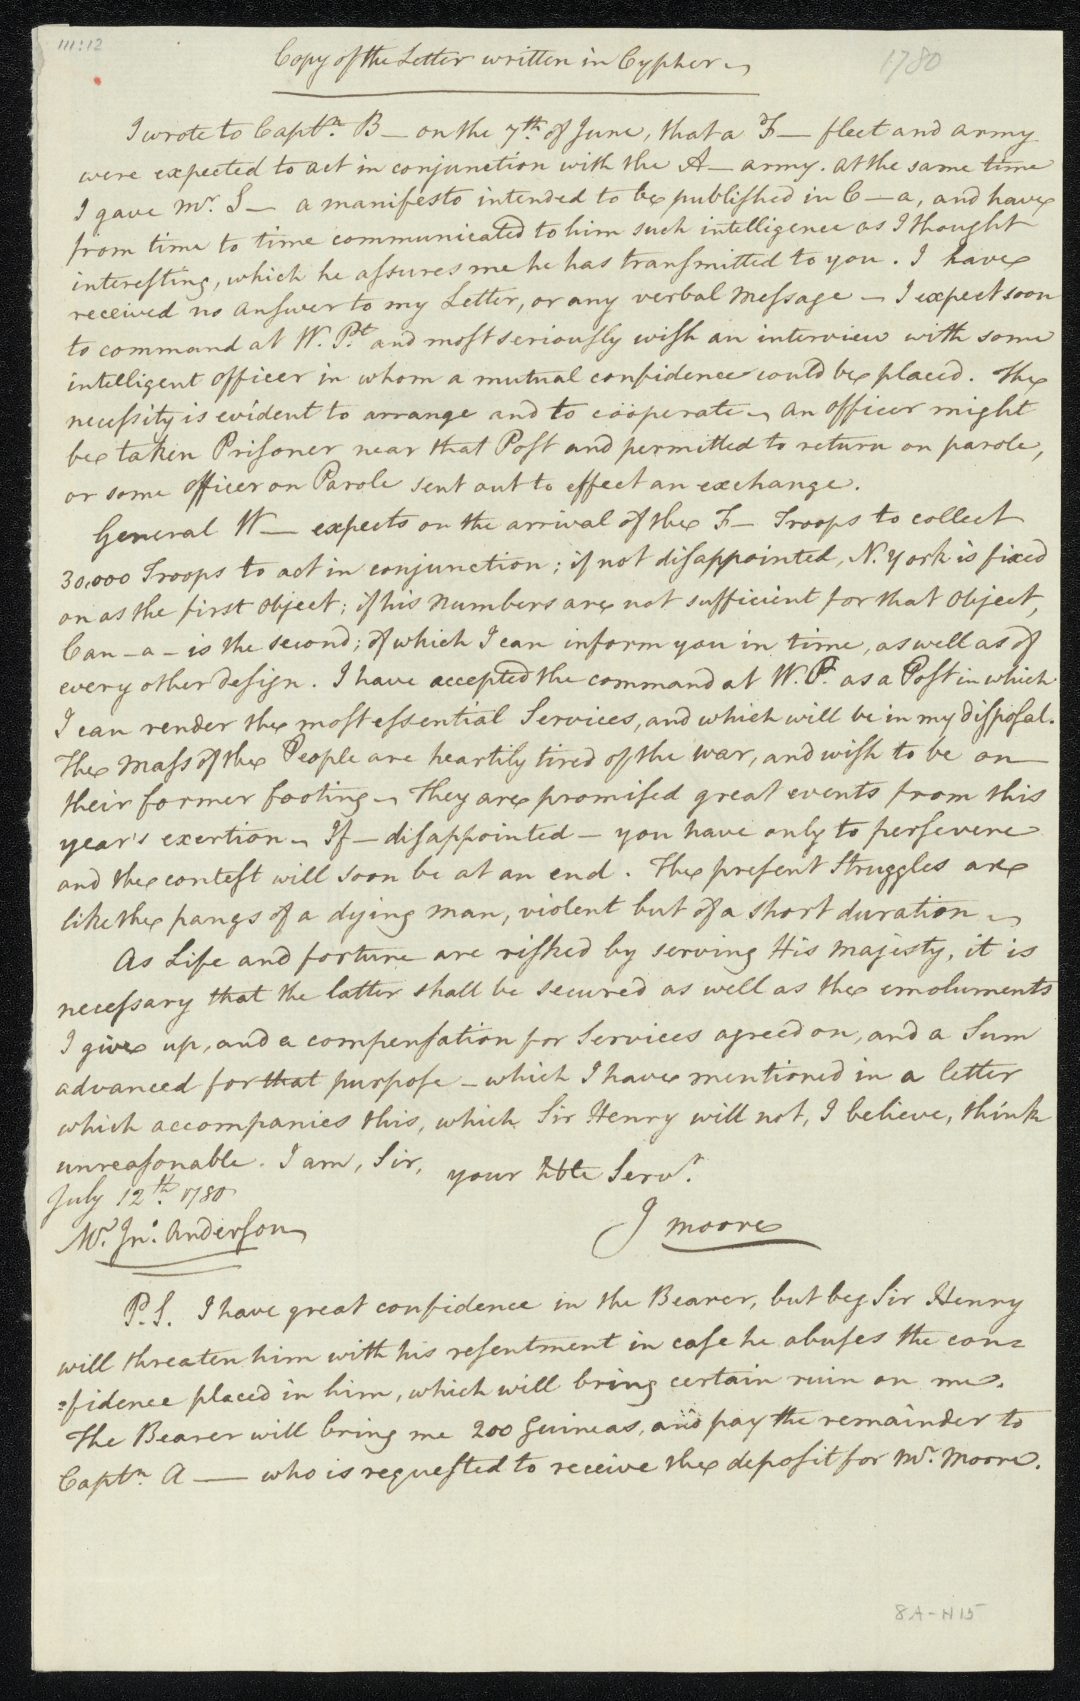 111:12
1780
Copy of the Letter written in Cypher
I wrote to Captn. B— on the 7th. of June, that a F— fleet and army
were expected to act in conjunction with the A— army. at the same time
I gave Mr. S— a manifesto intended to be published in C—a, and have
from time to time communicated to him such intelligence as I thought
interesting, which he assures me he has transmitted to you. I have
received no answer to my Letter, or any verbal Message — I expect soon
to command at W. Pt. and most seriously wish an interview with some
intelligent officer in whom a mutual confidence could be placed. The
necessity is evident to arrange and to coöperate — An officer might
be taken Prisoner near that Post and permitted to return on parole,
or some officer on Parole sent out to effect an exchange.
General W— expects on the arrival of the F— Troops to collect
30,000 Troops to act in conjunction; if not disappointed, N. York is fixed
on as the first Object; if his numbers are not sufficient for that Object,
Can—a— is the second; of which I can inform you in time, as well as of
every other design. I have accepted the command at W. Pt. as a Post in which
I can render the most essential Services, and which will be in my disposal.
The Mass of the People are heartily tired of the war, and wish to be on
their former footing — They are promised great events from this
year's exertion — If — disappointed — you have only to persevere
and the contest will soon be at an end. The present Struggles are
like the pangs of a dying man, violent but of a short duration —
As Life and fortune are risked by serving His Majesty, it is
necessary that the latter shall be secured as well as the emoluments
I give up, and a compensation for Services agreed on, and a Sum
advanced for that purpose — which I have mentioned in a letter
which accompanies this, which Sir Henry will not, I believe, think
unreasonable. I am, Sir,
your Hble Servt.
July 12th. 1780
J Moore
Mr. Jno. Anderson
P.S. I have great confidence in the Bearer, but beg Sir Henry
will threaten him with his resentment in case he abuses the con=
=fidence placed in him, which will bring certain ruin on me.
The Bearer will bring me 200 Guineas, and pay the remainder to
Captn. A — who is requested to receive the deposit for Mr. Moore.
8A-H15